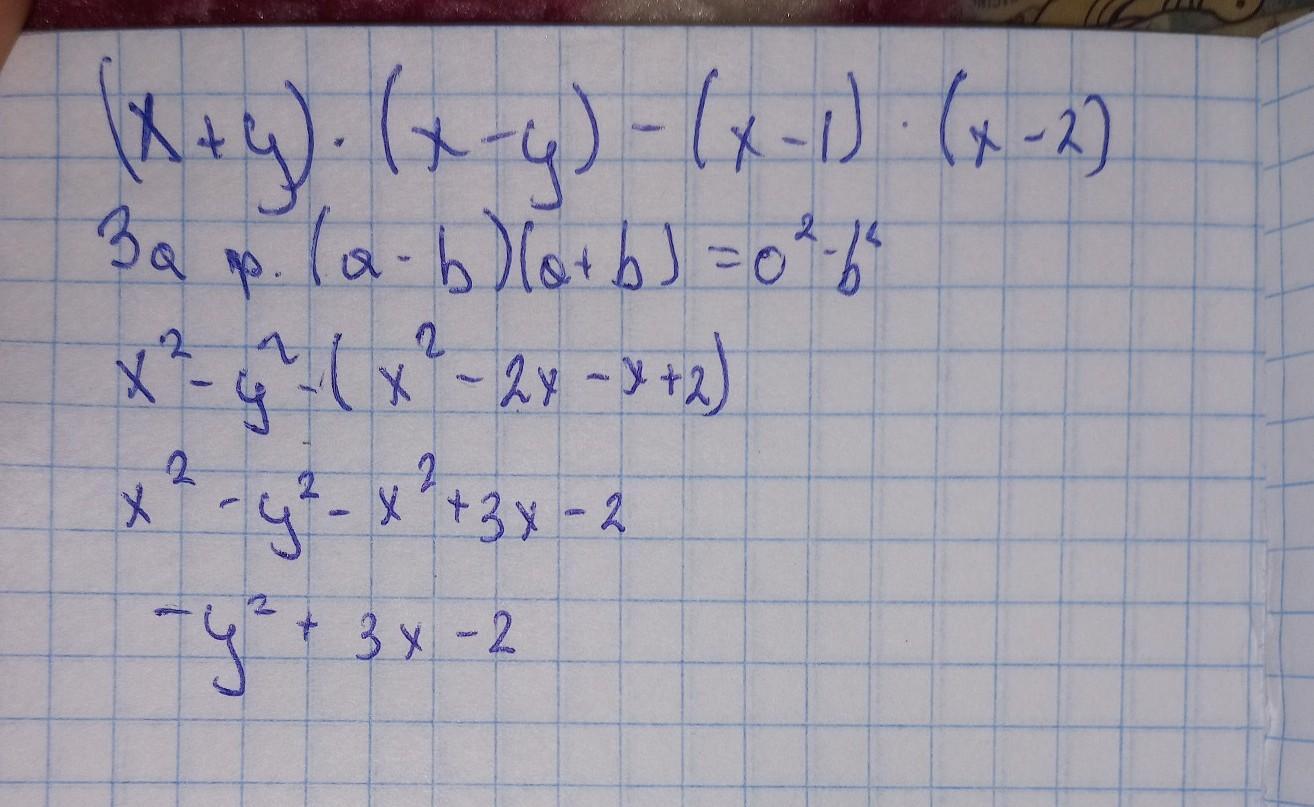 (x+y)·(x-y)-(x-1)·(x-2)
За р. (a-b)(a+b)=a²-b²
x²-y²-(x²-2x-x+2)
x²-y²-x²+3x-2
-y²+3x-2